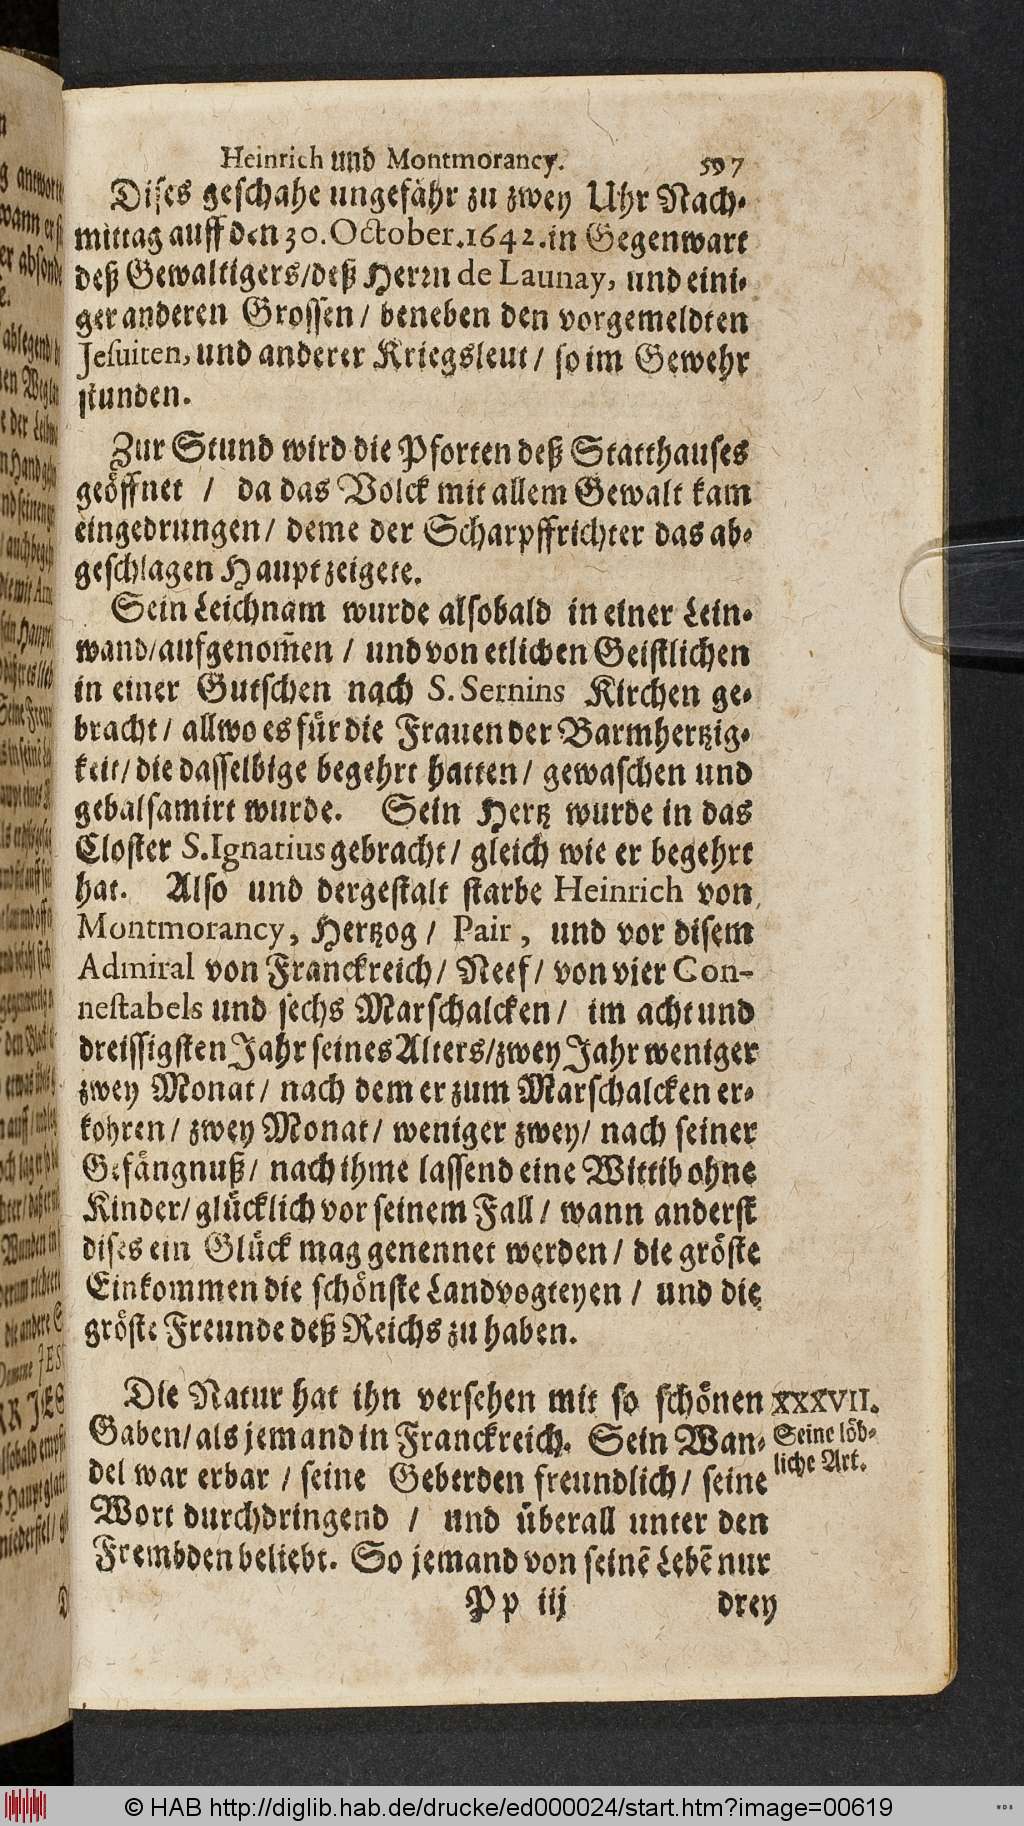 Heinrich und Montmorancy. 597
Dises geschahe ungefähr zu zwey Uhr Nach-
mittag auff den 30. October. 1642. in Gegenwart
deß Gewaltigers/ deß Herrn de Launay, und eini-
ger anderen Grossen/ beneben den vorgemeldten
Jesuiten, und anderer Kriegsleut/ so im Gewehr
stunden.
Zur Stund wird die Pforten deß Statthauses
geöffnet / da das Volck mit allem Gewalt kam
eingedrungen/ deme der Scharpffrichter das ab-
geschlagen Haupt zeigete.
Sein Leichnam wurde alsobald in einer Lein-
wand/ aufgenom̃en / und von etlichen Geistlichen
in einer Gutschen nach S. Sernins Kirchen ge-
bracht/ allwo es für die Frauen der Barmhertzig-
keit/ die dasselbige begehrt hatten/ gewaschen und
gebalsamirt wurde. Sein Hertz wurde in das
Closter S. Ignatius gebracht/ gleich wie er begehrt
hat. Also und dergestalt starbe Heinrich von
Montmorancy, Hertzog/ Pair, und vor disem
Admiral von Franckreich/ Neef/ von vier Con-
nestabels und sechs Marschalcken/ im acht und
dreissigsten Jahr seines Alters/ zwey Jahr weniger
zwey Monat/ nach dem er zum Marschalcken er-
kohren/ zwey Monat/ weniger zwey/ nach seiner
Gefängnuß/ nach ihme lassend eine Wittib ohne
Kinder/ glücklich vor seinem Fall/ wann anderst
dises ein Glück mag genennet werden/ die gröste
Einkommen die schönste Landvogteyen / und die
gröste Freunde deß Reichs zu haben.
Die Natur hat ihn versehen mit so schönen XXXVII.
Gaben/ als jemand in Franckreich. Sein Wan- Seine löb-
del war erbar / seine Geberden freundlich/ seine liche Art.
Wort durchdringend / und überall unter den
Frembden beliebt. So jemand von seinẽ Lebẽ nur
Pp iij drey
© HAB http://diglib.hab.de/drucke/ed000024/start.htm?image=00619